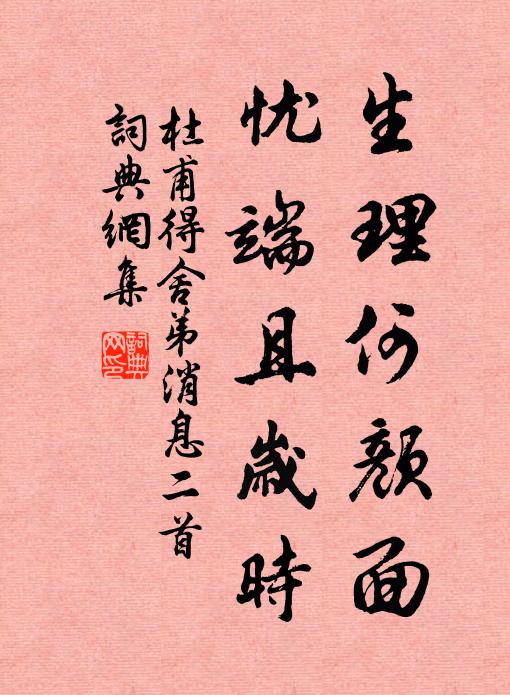 生理何顏面
忧端且歲時
杜甫得舍弟消息二首
詞典網集
詞典网印